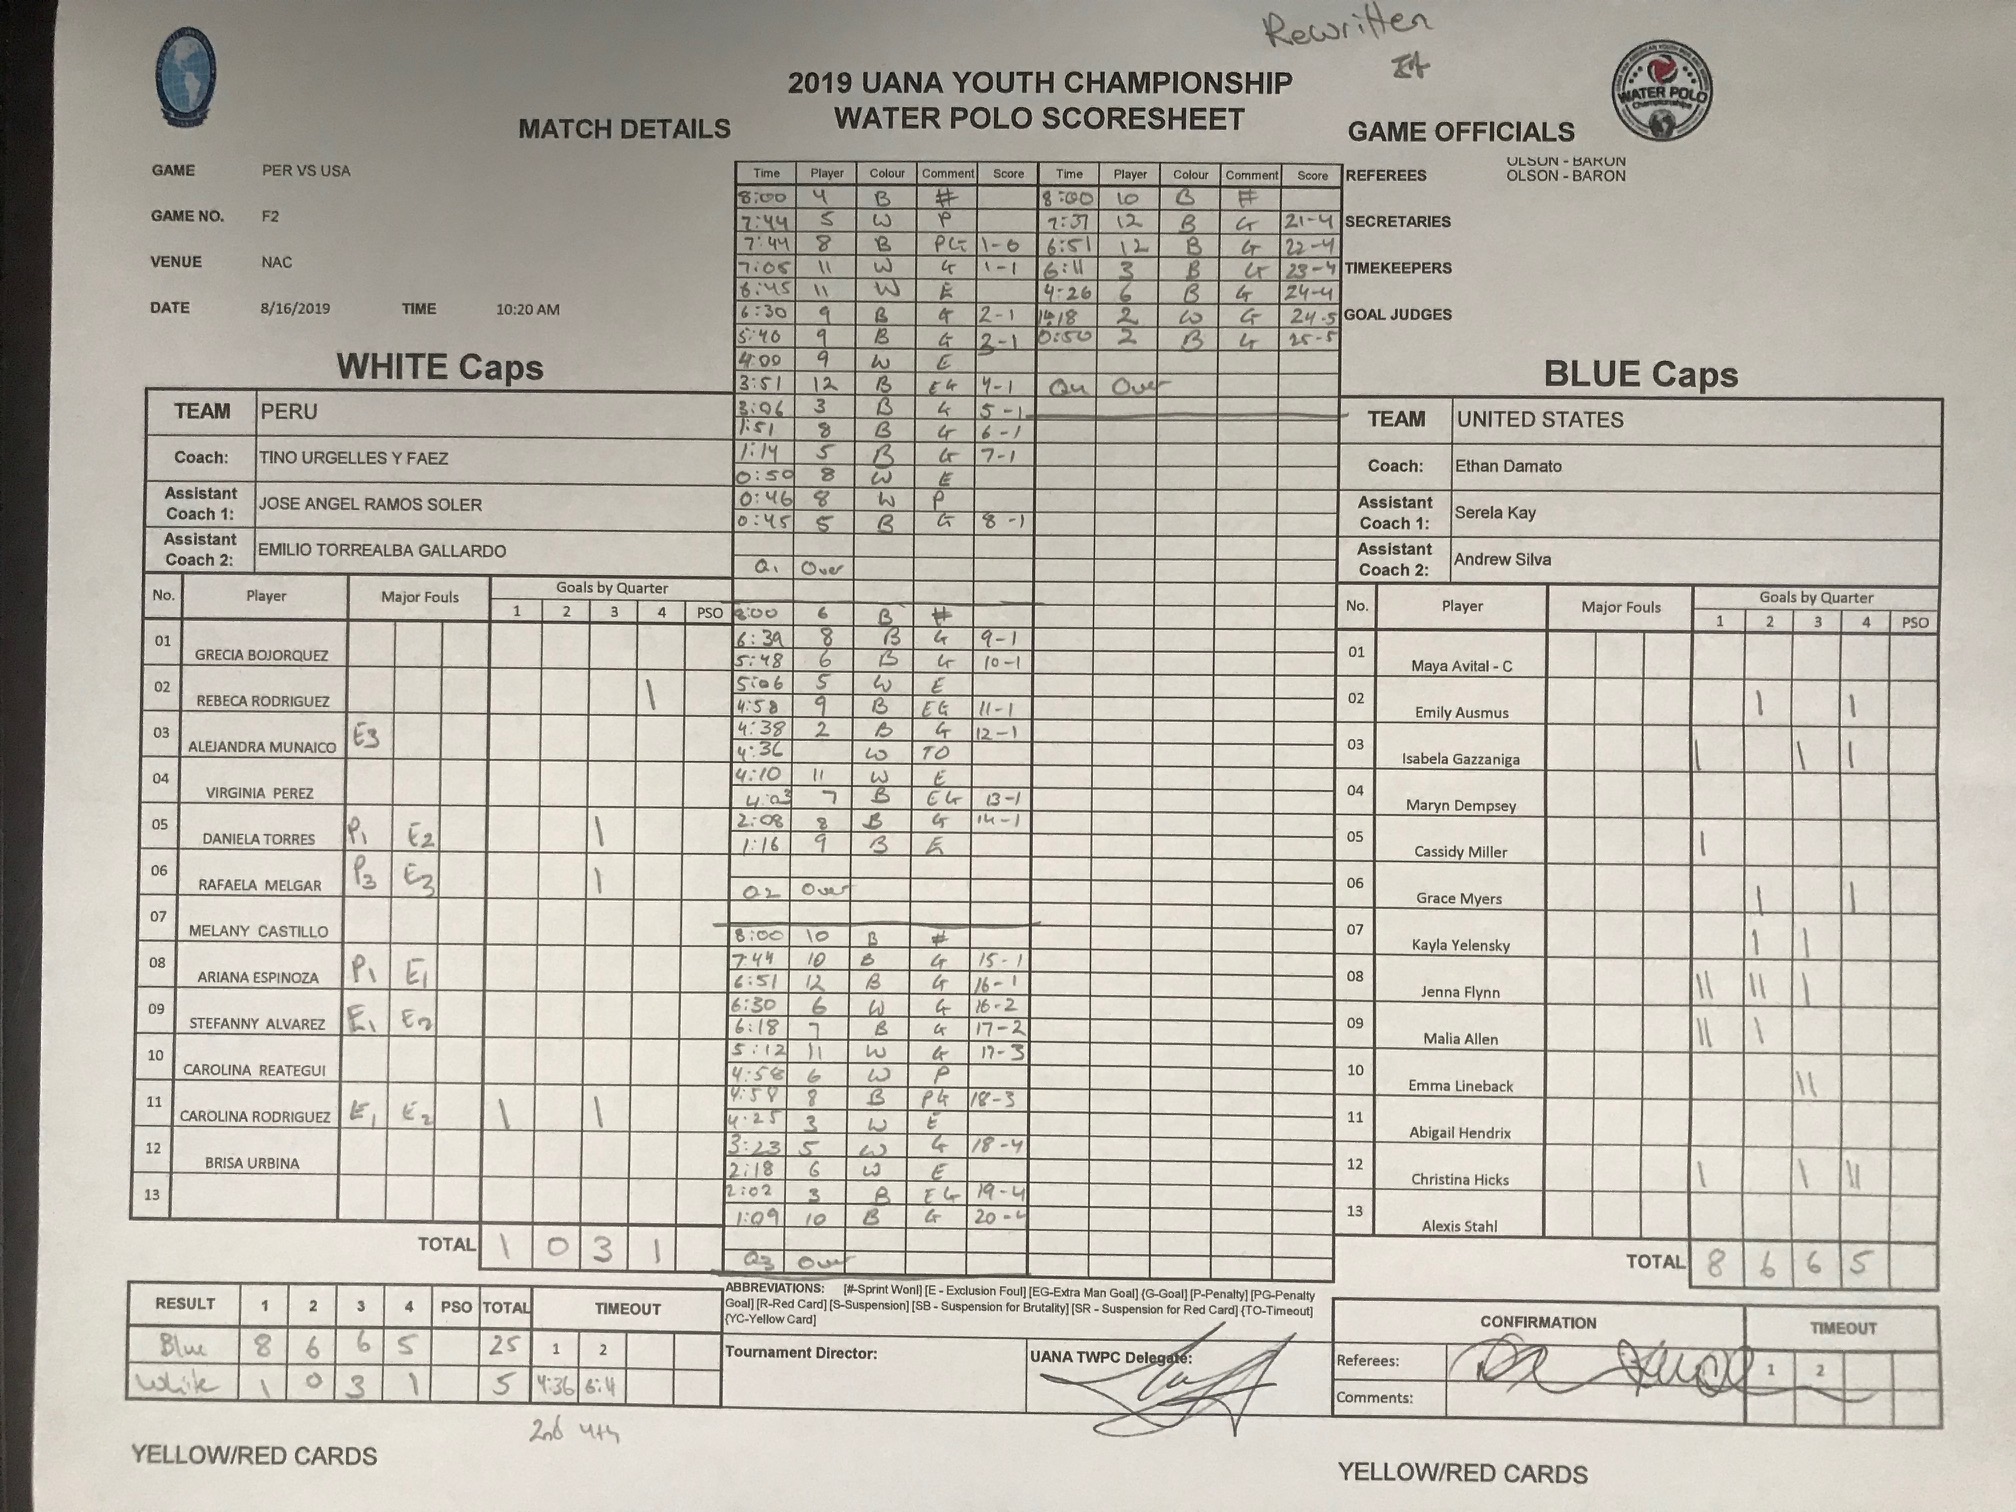 Rewritten
2019 UANA YOUTH CHAMPIONSHIP
WATER POLO SCORESHEET
MATCH DETAILS
GAME PER VS USA
GAME NO. F2
VENUE NAC
DATE 8/16/2019 TIME 10:20 AM
GAME OFFICIALS
WATER POLO
Championships
OLSON - BARON
REFEREES OLSON - BARON
SECRETARIES
TIMEKEEPERS
GOAL JUDGES
WHITE Caps
TEAM PERU
Coach: TINO URGELLES Y FAEZ
Assistant Coach 1: JOSE ANGEL RAMOS SOLER
Assistant Coach 2: EMILIO TORREALBA GALLARDO
No. Player Major Fouls Goals by Quarter
1 2 3 4 PSO
01 GRECIA BOJORQUEZ
02 REBECA RODRIGUEZ |
03 ALEJANDRA MUNAICO E3
04 VIRGINIA PEREZ
05 DANIELA TORRES P1 E2 |
06 RAFAELA MELGAR P3 E3 |
07 MELANY CASTILLO
08 ARIANA ESPINOZA P1 E1
09 STEFANNY ALVAREZ E1 E2
10 CAROLINA REATEGUI
11 CAROLINA RODRIGUEZ E1 E2 | |
12 BRISA URBINA
13
TOTAL 1 0 3 1
Time Player Colour Comment Score
8:00 4 B #
7:44 5 W P
7:44 8 B PG 1-0
7:05 11 W G 1-1
6:45 11 W E
6:30 9 B G 2-1
5:40 9 B G 3-1
4:00 9 W E
3:51 12 B EG 4-1
3:06 3 B G 5-1
1:51 8 B G 6-1
1:14 5 B G 7-1
0:50 8 W E
0:46 8 W P
0:45 5 B G 8-1
Q1 Over
8:00 6 B #
6:39 8 B G 9-1
5:48 6 B G 10-1
5:06 5 W E
4:58 9 B EG 11-1
4:38 2 B G 12-1
4:36 W TO
4:10 11 W E
4:03 7 B EG 13-1
2:08 8 B G 14-1
1:16 9 B E
Q2 Over
8:00 10 B #
7:44 10 B G 15-1
6:51 12 B G 16-1
6:30 6 W G 16-2
6:18 7 B G 17-2
5:12 11 W G 17-3
4:58 6 W P
4:58 8 B PG 18-3
4:25 3 W E
3:23 5 W G 18-4
2:18 6 W E
2:02 3 B EG 19-4
1:09 10 B G 20-4
Q3 Over
Time Player Colour Comment Score
8:00 10 B #
7:37 12 B G 21-4
6:51 12 B G 22-4
6:11 3 B G 23-4
4:26 6 B G 24-4
2 W G 24-5
0:50 2 B G 25-5
Q4 Over
BLUE Caps
TEAM UNITED STATES
Coach: Ethan Damato
Assistant Coach 1: Serela Kay
Assistant Coach 2: Andrew Silva
No. Player Major Fouls Goals by Quarter
1 2 3 4 PSO
01 Maya Avital - C
02 Emily Ausmus | |
03 Isabela Gazzaniga | | |
04 Maryn Dempsey
05 Cassidy Miller |
06 Grace Myers | |
07 Kayla Yelensky | |
08 Jenna Flynn || || |
09 Malia Allen || |
10 Emma Lineback ||
11 Abigail Hendrix
12 Christina Hicks | | ||
13 Alexis Stahl
TOTAL 8 6 6 5
RESULT 1 2 3 4 PSO TOTAL TIMEOUT
Blue 8 6 6 5 25 1 2
White 1 0 3 1 5 4:36 6:4
2nd 4th
ABBREVIATIONS: [#-Sprint Wonl] [E - Exclusion Foul] [EG-Extra Man Goal] {G-Goal] [P-Penalty] [PG-Penalty
Goal] [R-Red Card] [S-Suspension] [SB - Suspension for Brutality] [SR - Suspension for Red Card] {TO-Timeout]
{YC-Yellow Card]
Tournament Director:
UANA TWPC Delegate:
CONFIRMATION TIMEOUT
Referees: 1 2
Comments:
YELLOW/RED CARDS
YELLOW/RED CARDS